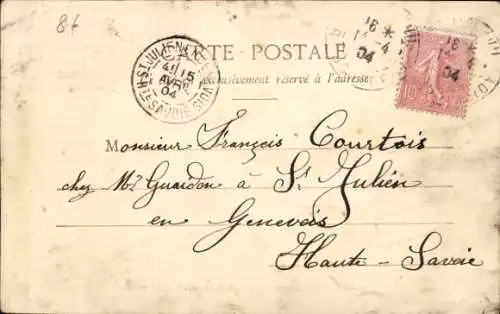 8f
CARTE POSTALE
exclusivement réservé à l'adresse
Monsieur François Courtois
chez Mr Guaidon à St Julien
en Genevois
Haute-Savoie
ST JULIEN
Hte SAVOIE
15
AVRIL
04
16
4
04
16
4
04
10